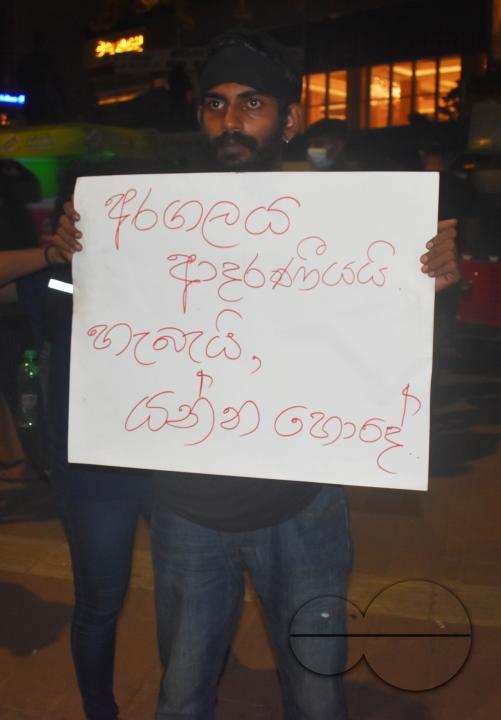 අරගලයයි
ආදරණීයයි.
හැබැයි,
යන්න හොදේ